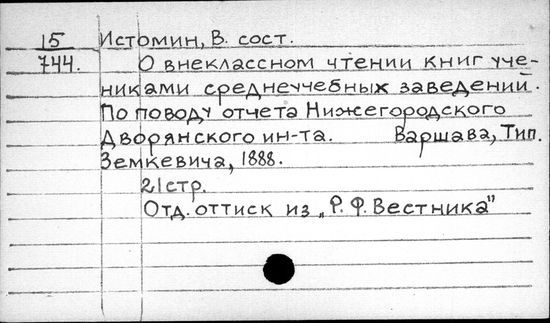 15 Истомин, В. сост.
744. О внеклассном чтении книг уче-
никами среднеучебных заведений.
По поводу отчета Нижегородского
Дворянского ин-та. Варшава, Тип.
Земкевича, 1888.
21стр.
Отд. оттиск из „Р. Ф. Вестника"